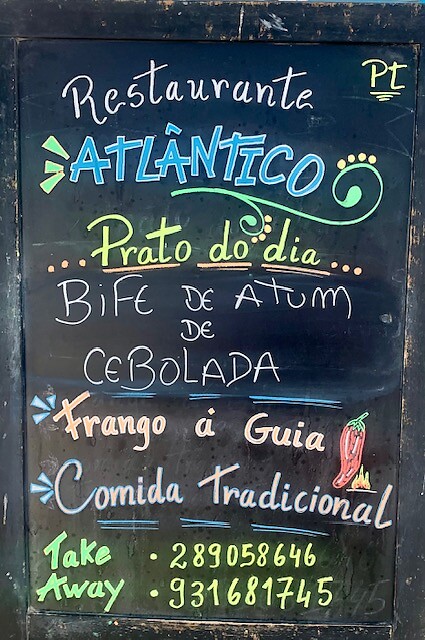 PT
Restaurante
ATLÂNTICO
...Prato do dia...
BIFE DE ATUM
DE
CEBOLADA
Frango á Guia
Comida Tradicional
Take · 289058646
Away · 931681745